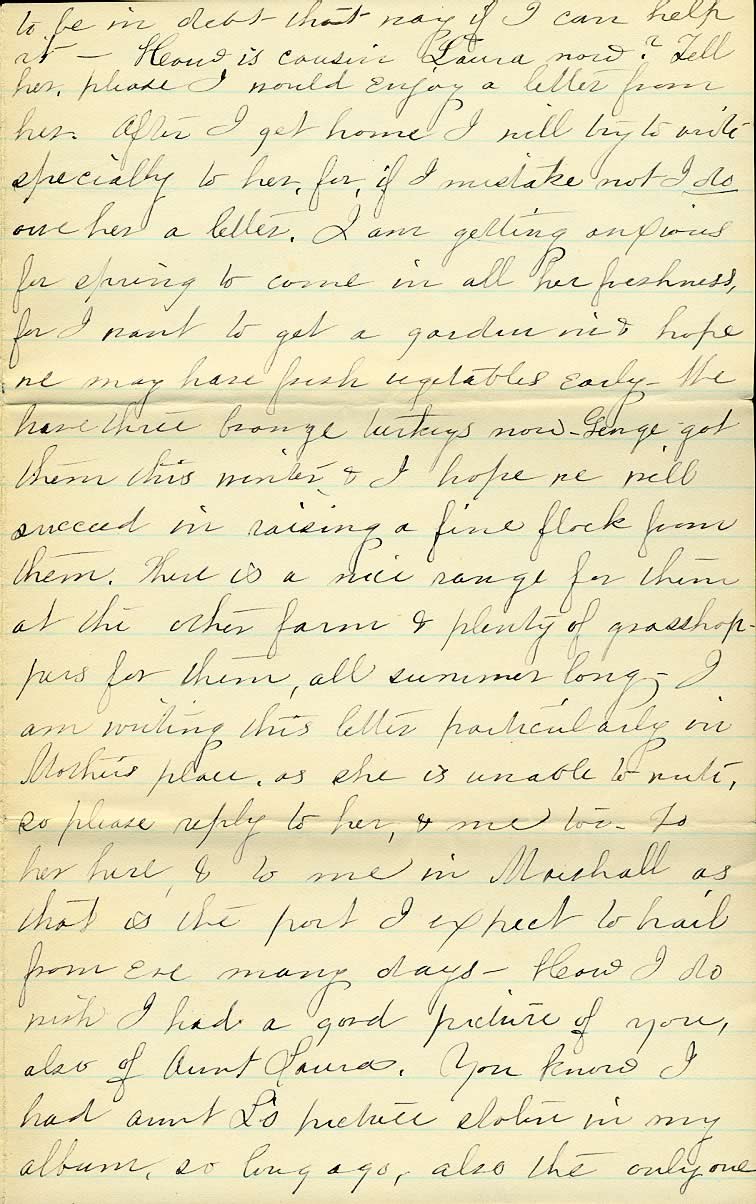 to be in debt that way if I can help
it — How is cousin Laura now? Tell
her, please I would enjoy a letter from
her. After I get home I will try to write
specially to her, for, if I mistake not I do
owe her a letter. I am getting anxious
for spring to come in all her freshness,
for I want to get a garden in & hope
we may have fresh vegetables early — We
have three bronze turkeys now — George got
them this winter & I hope we will
succeed in raising a fine flock from
them. There is a nice range for them
at the other farm & plenty of grasshop-
pers for them, all summer long — I
am writing this letter particularly in
Mother's place, as she is unable to write,
so please reply to her, & me too — To
her here, & to me in Marshall as
that is the port I expect to hail
from ere many days — How I do
wish I had a good picture of you,
also of Aunt Laura. You know I
had aunt L's picture stolen in my
album, so long ago, also the only one